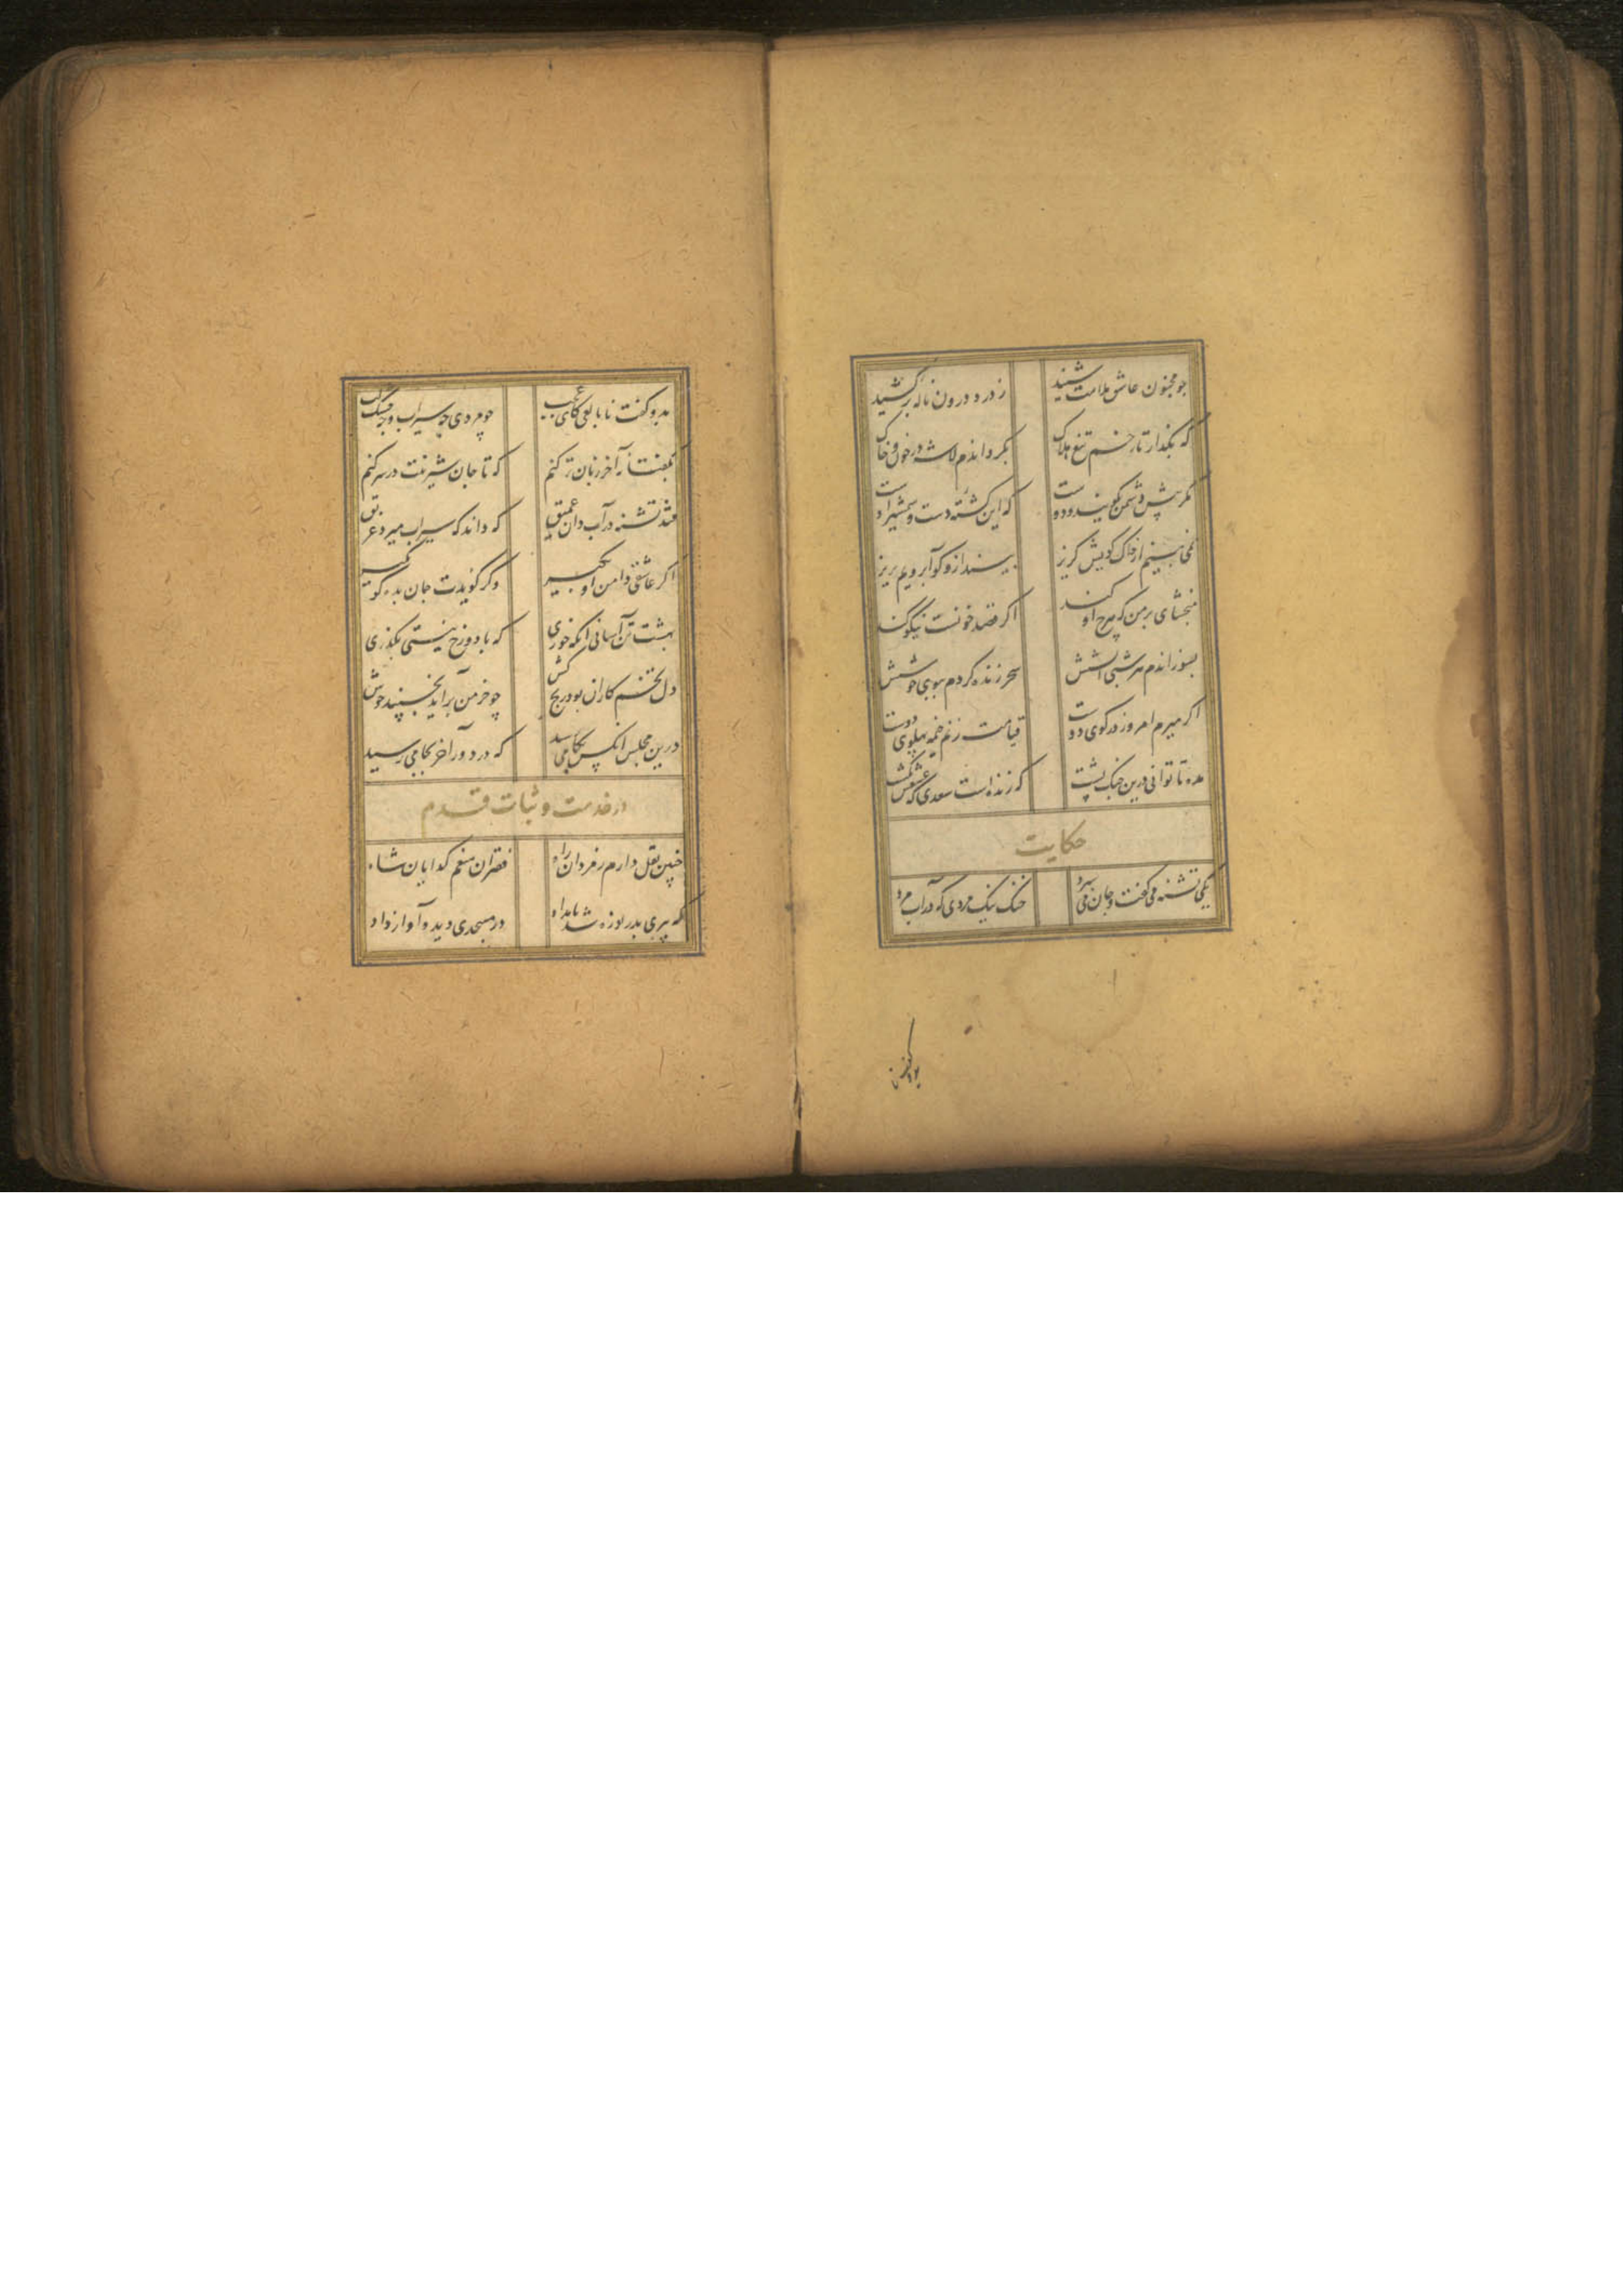 چو مجنون عاشق ملامت شنید ز درد درون ناله برکشید
که بگذار تا زخم تیغ هلاک بگرداندم لاشه در خون و خاک
مگر پیش دشمن بگویند و دوست که این کشته دست و شمشیر اوست
نمی بینم از خاک کویش گریز ببیداد ازو گو آبرویم بریز
ببخشای بر من که هرچ او کند اگر قصد خونست نیکو کند
بسوزاندم هر شبی آتشش سحر زنده کردم ببوی خوشش
اگر میرم امروز در کوی دوست قیامت زنم خیمه پهلوی دوست
مده تا توانی درین جنگ پشت که زنده است سعدی که عشقش بکشت
حکایت
یکی تشنه می گفت و جان می سپرد خنک نیک مردی که در آب مرد
بدو گفت نابالغی کای عجب چو مردی چه سیراب و چه خشک
بگفتا نه آخر زبان تر کنم که تا جان شیرینت در سر کنم
فتد تشنه در آب دان عمیق که داند که سیراب میرد غریق
اگر عاشقی دامن او بگیر وگر گویدت جان بده گو بگیر
بهشت تن آسانی آنگه خوری که با دوزخ نیستی بگذری
دل تخم کاران بود رنج کش چو خرمن برآید بخسپند خوش
درین مجلس آنکس بکامی رسید که در دور آخر بجامی رسید
در خدمت و ثبات قدم
چنین نقل دارم ز مردان راه فقیران منعم گدایان شاه
که پیری بدریوزه شد بامداد در مسجدی دید و آواز داد